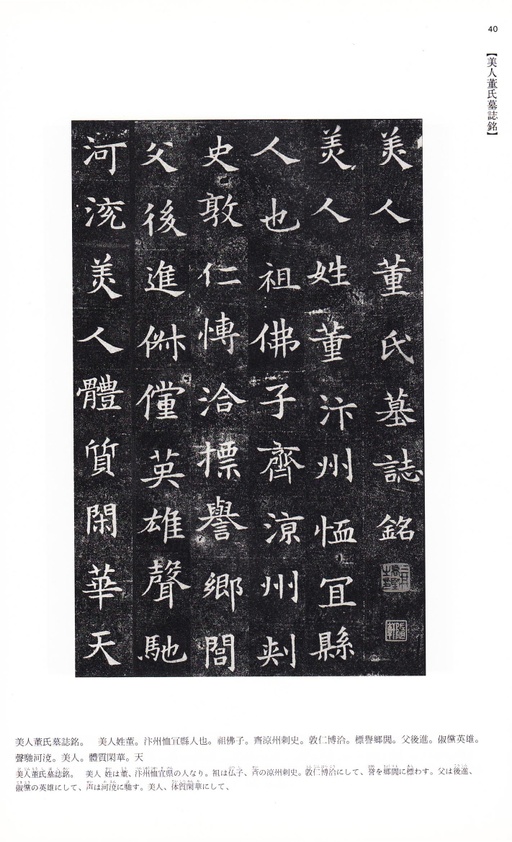 40
【美人董氏墓誌銘】
美人董氏墓誌銘
美人姓董汴州恤冝縣
人也祖佛子齊涼州刾
史敦仁愽洽摽譽鄉閭
父後進俶儻英雄聲馳
河渷美人體質閑華天
美人董氏墓誌銘。 美人姓董。汴州恤冝縣人也。祖佛子。齊涼州刺史。敦仁博洽。標譽郷閭。父後進。俶儻英雄。
聲馳河渷。美人。體質閑華。天
美人董氏墓誌銘。 美人 姓は董、汴州恤冝県の人なり。祖は仏子、斉の涼州刺史。敦仁博洽にして、誉を郷閭に標わす。父は後進、
俶儻の英雄にして、声は河渷に馳す。美人、体質閑華にして、